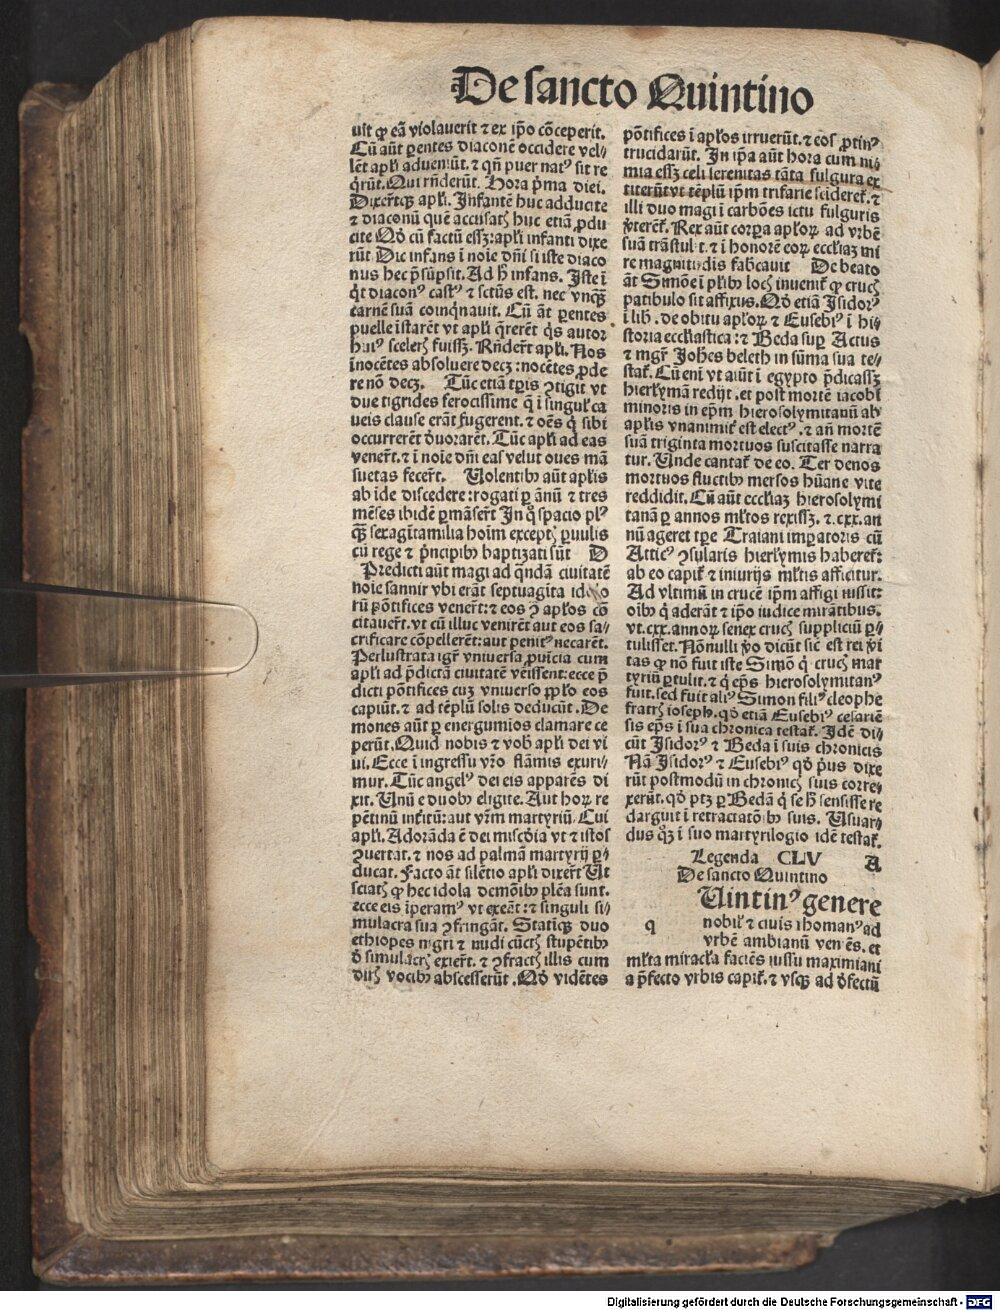 De sancto Quintino
uit ꝙ eã violauerit ⁊ ex ip̃o cõceperit.
Cũ aũt parentes diaconẽ occidere vel⸗
lẽt apl̃i adueniũt. ⁊ qñ puer nat⁹ sit re
q̃rũt. Qui rñderũt. Hora p̃ma diei.
Dixerũtq̃ꝫ apl̃i. Infantẽ huc adducite
⁊ diaconũ quẽ accusatꝭ huc etiã ꝓdu
cite Qḋ cũ factũ essꝫ: apl̃i infanti dixe
rũt. Dic infans ĩ noĩe dñi si iste diaco
nus hec p̃sũpsit. Ad h̃ infans. Iste ĩ
q̃t diacon⁹ cast⁹ ⁊ sctũs est. nec vnq̃ꝫ
carnẽ suã coinq̃nauit. Cũ ãt ꝑentes
puelle ĩstarẽt vt apl̃i q̃rerẽt q̃s autor
hui⁹ scelerꝭ fuissꝫ. Rñder̃t apl̃i. Nos
ĩnocẽtes absoluere decꝫ: nocẽtes ꝓde
re nõ decꝫ. Tũc etiã tꝑis ↄtigit vt
due tigrides ferocissime q̃ ĩ singul̃ ca
ueis clause erãt fugerent. ⁊ oẽs q̃ sibi
occurrerẽt d̾uorarẽt. Tũc apl̃i ad eas
vener̃t. ⁊ ĩ noĩe dñi eas velut oues mã
suetas fecer̃t. Uolentibꝰ aũt apl̃is
ab ĩde discedere: rogati ꝑ ãnũ ⁊ tres
mẽses ibidẽ ꝑmãser̃t In q̊ spacio pl⁹
q̃ꝫ sexagĩtamilia hoĩm exceptꝭ ꝑuulis
cũ rege ⁊ p̃ncipibꝰ baptizati sũt D
Predicti aũt magi ad q̃ndã ciuitatẽ
noĩe sannir vbi erãt septuagĩta idolo
rũ põtifices vener̃t: ⁊ eos ↄ̃ apl̃os cõ
citauer̃t. vt cũ illuc venirẽt aut eos sa⸗
crificare cõpellerẽt: aut penit⁹ necarẽt.
Perlustrata igr̃ vniuersa ꝓuĩcia cum
apl̃i ad p̃dictã ciuitatẽ vẽissent: ecce p̃
dicti põtifices cuꝫ vniuerso ꝓpl̃o eos
capiũt. ⁊ ad tẽplũ solis deducũt. De
mones aũt ꝑ energumios clamare ce
perũt. Quid nobis ⁊ vob̃ apl̃i dei vi
ui. Ecce ĩ ingressu vr̃o flãmis exuri⸗
mur. Tũc angel⁹ dei eis apparẽs di
xit. Unũ e duobꝰ eligite. Aut hoꝝ re
pẽtinũ inťitũ: aut vr̃m martyriũ. Cui
apl̃i. Adorãda ẽ dei misc̃dia vt ⁊ istos
ↄuertat. ⁊ nos ad palmã martyrij ꝑ⸗
ducat. Facto ãt silẽtio apl̃i dixer̃t Ut
sciatꝭ ꝙ hec idola demõibꝰ plẽa sunt.
ecce eis ĩperam⁹ vt exeãt: ⁊ singuli si⸗
mulacra sua ↄfringãt. Statiq̃ꝫ duo
ethiopes nigri ⁊ nudi cũctꝭ stupẽtibꝰ
d̾ simulacrꝭ exier̃t. ⁊ ↄfractꝭ illis cum
dirꝭ vocibꝰ abscesserũt. Qḋ vidẽtes
põtifices ĩ apl̃os irruerũt. ⁊ eos ꝓtin⁹
trucidarũt. In ip̃a aũt hora cum ni⸗
mia essꝫ celi serenitas tãta fulgura ex
titerũt vt tẽplũ ip̃m trifarie scideret̃. ⁊
illi duo magi ĩ carbões ictu fulguris
v̓terẽt̃. Rex aũt corꝑa apl̃oꝝ ad vrbẽ
suã trãstulit. ⁊ ĩ honorẽ eoꝝ eccl̃iaꝫ mi
re magnitudĩs fabricauit De beato
ãt Simõe ĩ pl̃ibꝰ locꝭ inuenit̃ ꝙ crucꝭ
patibulo sit affixus. Qḋ etiã Isidor⁹
ĩ lib̃. de obitu apl̃oꝝ ⁊ Eusebi⁹ ĩ hi⸗
storia eccl̃iastica: ⁊ Beda suꝑ Actus
⁊ mgr̃ Joh̃es beleth in sũma sua te⸗
stat̃. Cũ enĩ vt aiũt ĩ egypto p̃dicassꝫ
hierl̃ymã redijt. et post mortẽ iacobi
minoris in ep̃m hierosolymitanũ ab
apl̃is vnanimit̃ est elect⁹. ⁊ añ mortẽ
suã triginta mortuos suscitasse narra
tur. Unde cantat̃ de eo. Ter denos
mortuos fluctibꝰ mersos hũane vite
reddidit. Cũ aũt eccl̃iaꝫ hierosolymi
tanã ꝑ annos ml̃tos rexissꝫ. ⁊ .cxx. an
nũ ageret tꝑe Traiani imꝑatoris cũ
Attic⁹ ↄsularis hierl̃ymis haberet̃:
ab eo capit̃ ⁊ iniurijs ml̃tis afficitur.
Ad vltimũ in crucẽ ip̃m affigi iussit:
oĩbꝰ q̃ aderãt ⁊ ip̃o iudice mirãtibus.
vt .cxx. annoꝝ senex crucꝭ suppliciũ ꝑ⸗
tulisset. Nõnulli v̓o dicũt sic est rei v̓i
tas ꝙ nõ fuit iste Simõ q̃ crucꝭ mar
tyriũ ꝑtulit. ⁊ q̃ ep̃s hierosolymitan⁹
fuit. sed fuit ali⁹ Simon fili⁹ cleophe
fratrꝭ ioseph. qḋ etiã Eusebi⁹ cesariẽ
sis ep̃s ĩ sua chronica testat̃. Idẽ di⸗
cũt Isidor⁹ ⁊ Beda ĩ suis chronicis
Nã Isidor⁹ ⁊ Eusebi⁹ qḋ p̃us dixe
rũt postmodũ in chronicꝭ suis corre⸗
xerũt. qḋ ptꝫ ꝑ Bedã q̃ se h̃ sensisse re
darguit ĩ retractatõĩbꝰ suis. Usuar⸗
dus q̊ꝫ ĩ suo martyrilogio idẽ testat̃.
Legenda CLV A
De sancto Quintino
q Uintin⁹ genere
nobil̃ ⁊ ciuis rhoman⁹ ad
vrbẽ ambianũ veniẽs. et
ml̃ta miracl̃a faciẽs iussu maximiani
a p̃fecto vrbis capit̃. ⁊ vsq̃ꝫ ad d̾fectũ
Digitalisierung gefördert durch die Deutsche Forschungsgemeinschaft - DFG